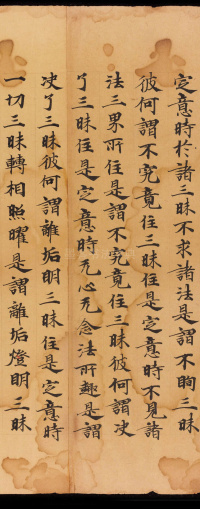 定意時於諸三昧不求諸法是謂不眴三昧
彼何謂不究竟住三昧住是定意時不見諸
法三界所住是謂不究竟住三昧彼何謂决
了三昧住是定意時无心无念法所趣是謂
决了三昧彼何謂離垢明三昧住是定意時
一切三昧轉相照曜是謂離垢燈明三昧